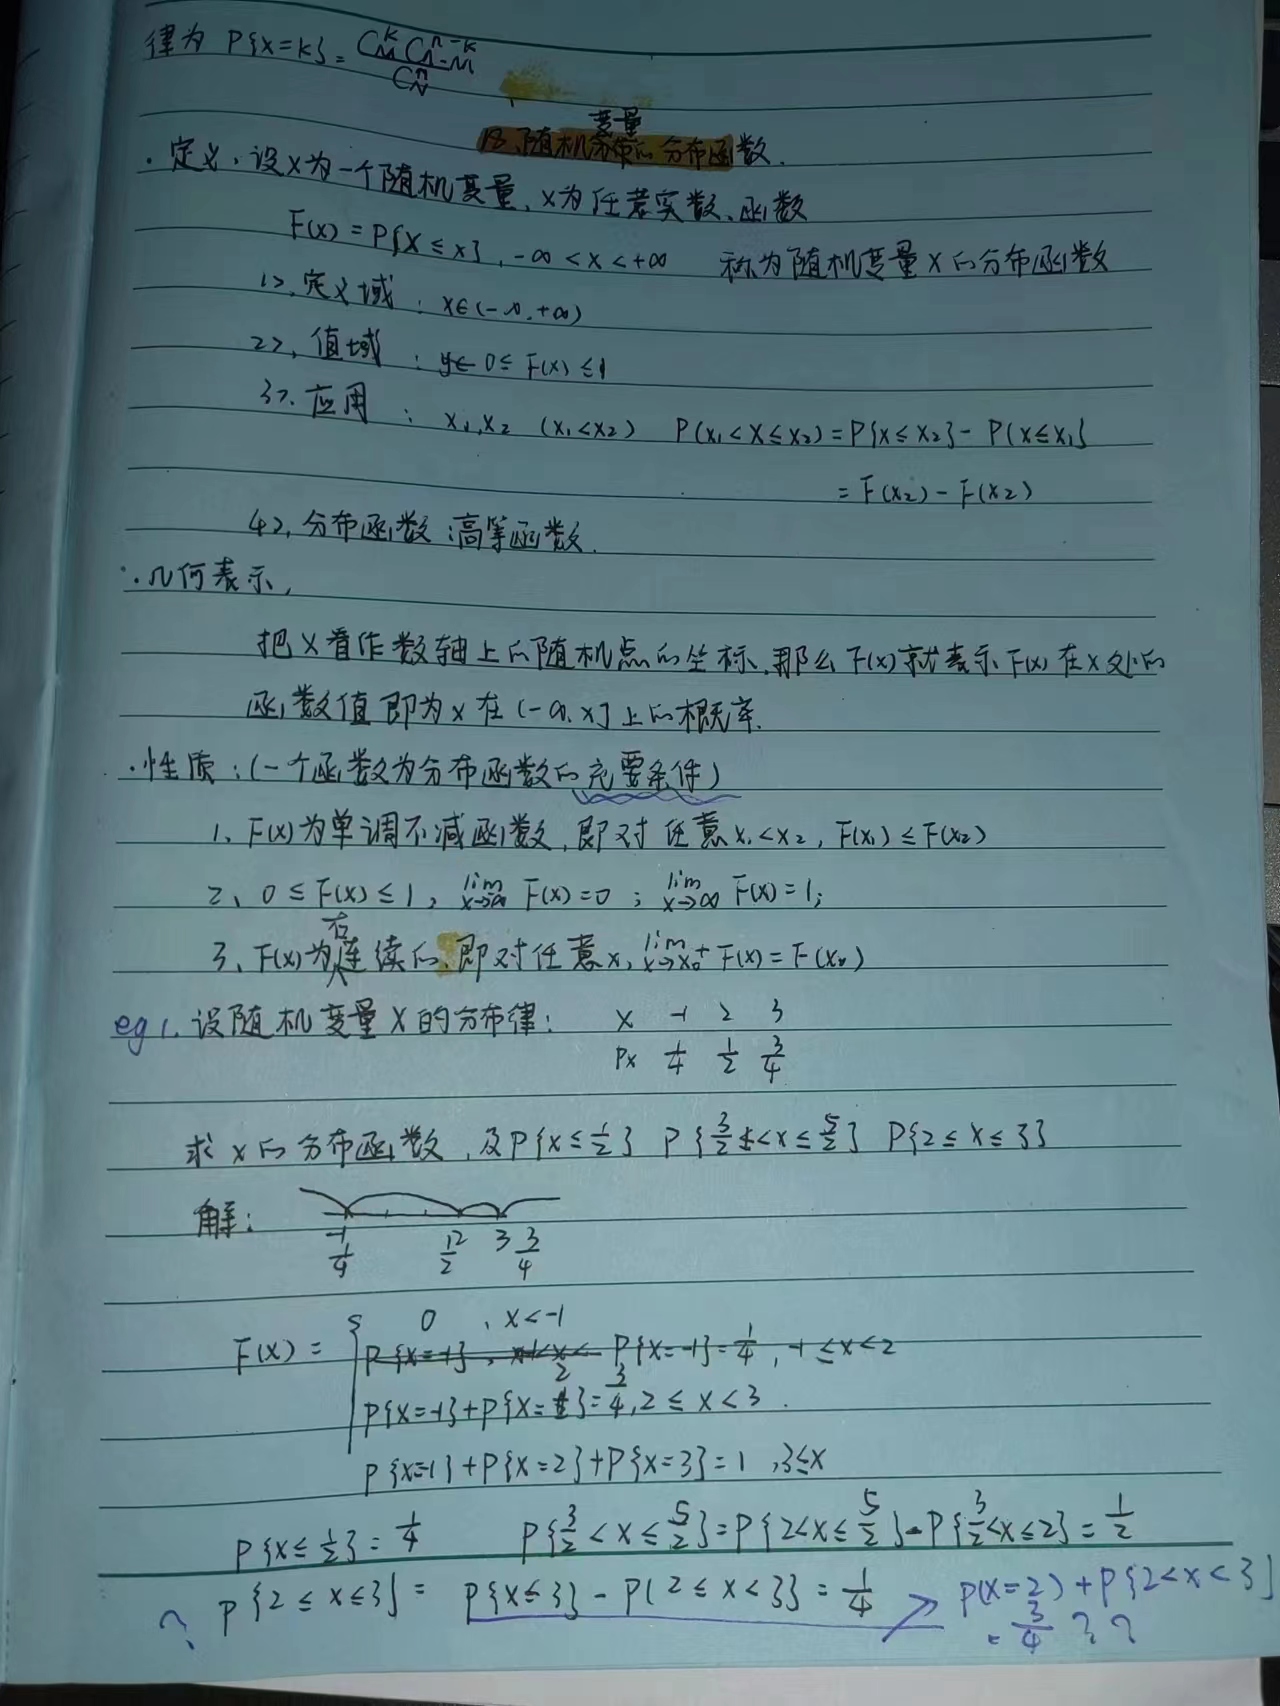 律为 P{X=k}= C_M^k C_{N-M}^{n-k} / C_N^n
变量
18、随机分布的分布函数.
·定义、设X为一个随机变量,x为任意实数、函数
F(x)=P{X≤x}, -∞<x<+∞ 称为随机变量X的分布函数
1>.定义域:x∈(-∞,+∞)
2>.值域:y∈ 0≤F(x)≤1
3>.应用:x₁,x₂ (x₁<x₂) P(x₁<X≤x₂)=P{X≤x₂}-P(X≤x₁}
=F(x₂)-F(x₂)
4>.分布函数:高等函数.
·几何表示,
把X看作数轴上的随机点的坐标.那么F(x)就表示F(x)在X处的
函数值即为X在(-∞,x]上的概率.
·性质:(一个函数为分布函数的充要条件)
1、F(x)为单调不减函数,即对任意x₁<x₂,F(x₁)≤F(x₂)
2、0≤F(x)≤1, lim x→∞ F(x)=0; lim x→∞ F(x)=1;
3、F(x)为右连续的、即对任意x, lim x→x₀⁺ F(x)=F(x₀)
eg1.设随机变量X的分布律: X -1 2 3
Px 1/4 1/2 3/4
求X的分布函数,及P{X≤1/2} P{3/2<X≤5/2} P{2≤X≤3}
解:
-1 2 3
1/4 1/2 3/4
F(x)= { 0 , x<-1
P{X=-1}, P{X=-1}=1/4, -1≤x<2
P{X=-1}+P{X=2}=3/4, 2≤x<3.
P{X=1}+P{X=2}+P{X=3}=1 ,3≤x
P{X≤1/2}=1/4 P{3/2<X≤5/2}=P{2<X≤5/2}-P{3/2<X≤2}=1/2
? P{2≤X≤3}= P{X≤3}-P(2≤X<3}=1/4 P(X=2)+P{2<X<3}
=3/4 ??